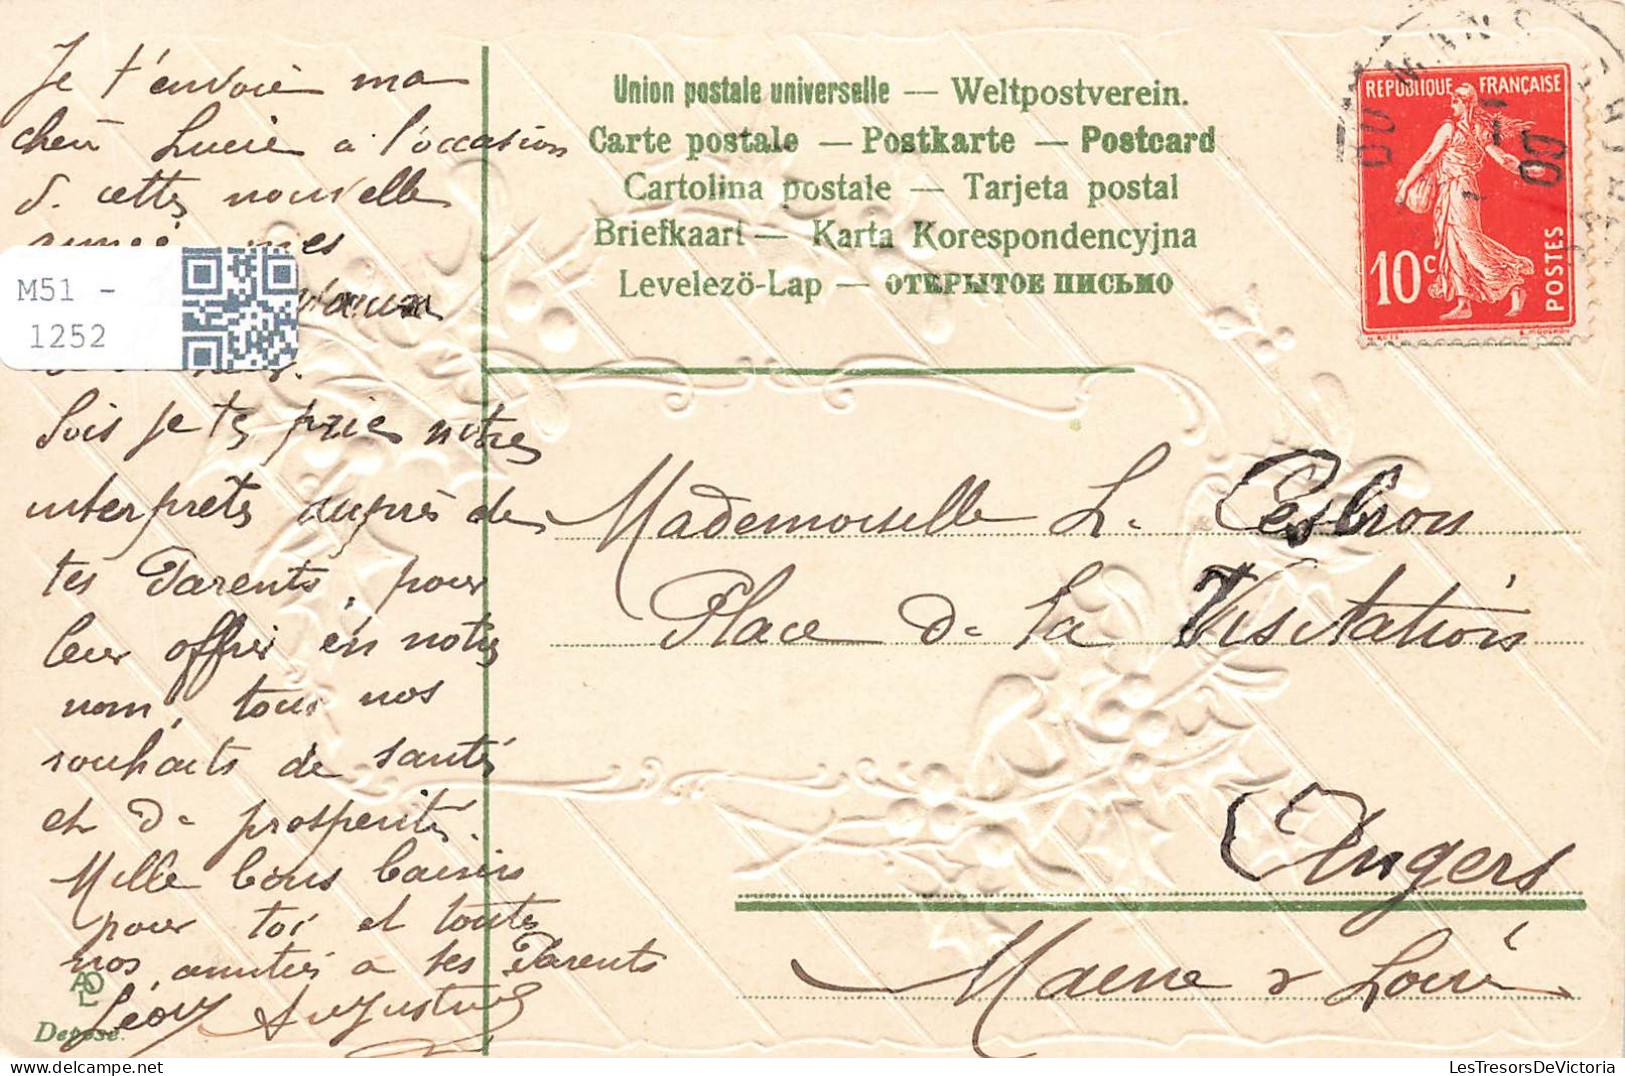 Je t'envoie ma
cher Lucie a l'occasion
d. cette nouvelle
année mes
Sois je te prie notre
interprète auprès de
tes Parents, pour
leur offrir en notre
nom, tous nos
souhaits de santé
et de prosperité.
Mille bons baisers
pour toi et toutes
nos amitiés a tes Parents
Léon Augustine
Deposé.
M51 -
1252
Union postale universelle — Weltpostverein.
Carte postale — Postkarte — Postcard
Cartolina postale — Tarjeta postal
Briefkaart — Karta Korespondencyjna
Levelezö-Lap — ОТКРЫТОЕ ПИСЬМО
REPUBLIQUE FRANÇAISE
10c
POSTES
Mademoiselle L. Cesbron
Place de la Visitation
Angers
Maine & Loire
LesTresorsDeVictoria.com